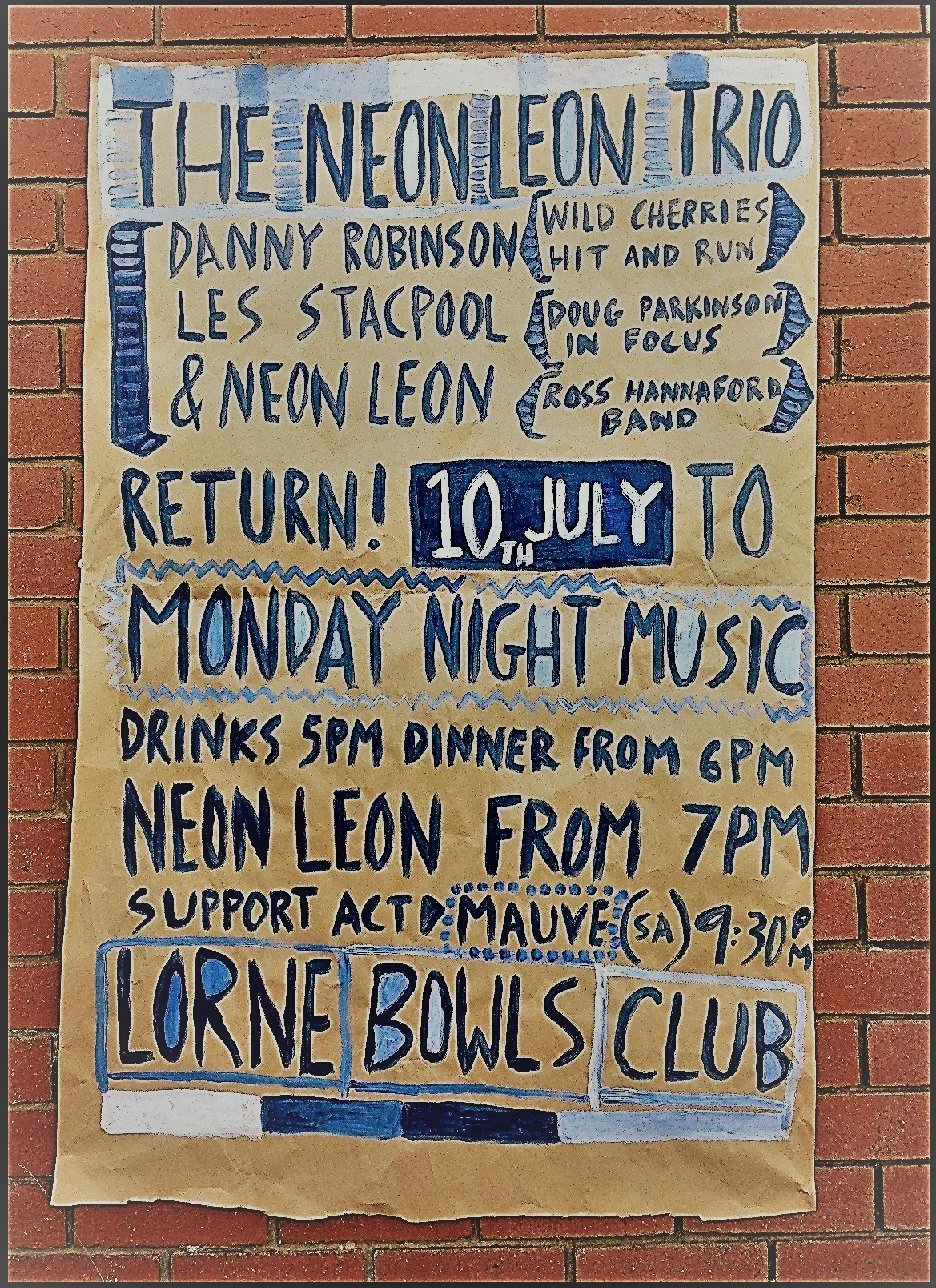 THE NEON LEON TRIO
DANNY ROBINSON (WILD CHERRIES
HIT AND RUN)
LES STACPOOL (DOUG PARKINSON
IN FOCUS)
& NEON LEON (ROSS HANNAFORD
BAND)
RETURN! 10TH JULY TO
MONDAY NIGHT MUSIC
DRINKS 5PM DINNER FROM 6PM
NEON LEON FROM 7PM
SUPPORT ACT MAUVE (SA) 9:30PM
LORNE BOWLS CLUB